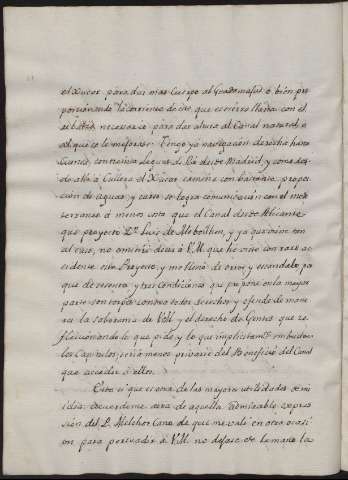 el Xucar para dar mas Cuerpo al Guadamajud, ó bien pro
porcionando la corriente de éste, que es rio
necesario para dar altura al Canal natural ó
al que se le mejorase. Tengo ya navegacion derecha hasta
Cuenca, con treinta leguas de desde Madrid, y como des-
de alli á Cullera el Xucar camina con bastante propor-
cion de aguas, y caxa se logra comunicacion con el medi
terraneo á menos costa que el Canal desde Alicante
que proyectó Dn. Luis de y ya que viene con
al caso, no omitiré decir á V.M. que he visto con raro ac
cidente este Proyecto, y me llenó de orror, y escandalo, por
que de sesenta, y tres Condiciones que propone en la mayor
parte son torpes contra todo derecho, y ofende de mane
ra la soberania de V.M. y el derecho de Gentes, que re-
flexionando lo que pide, y lo que implicitamte. embuelven
los Capitulos, seria menos privarse del Beneficio del Canal
que acceder á ellos.
Esta si que es una de las mayores utilidades de mi
idea: acuerdome aora de aquella admirable expre
sion del P. Melchor Cano de que me valí en otra ocasi
on para persuadir á V.M. no dejase de la mano la